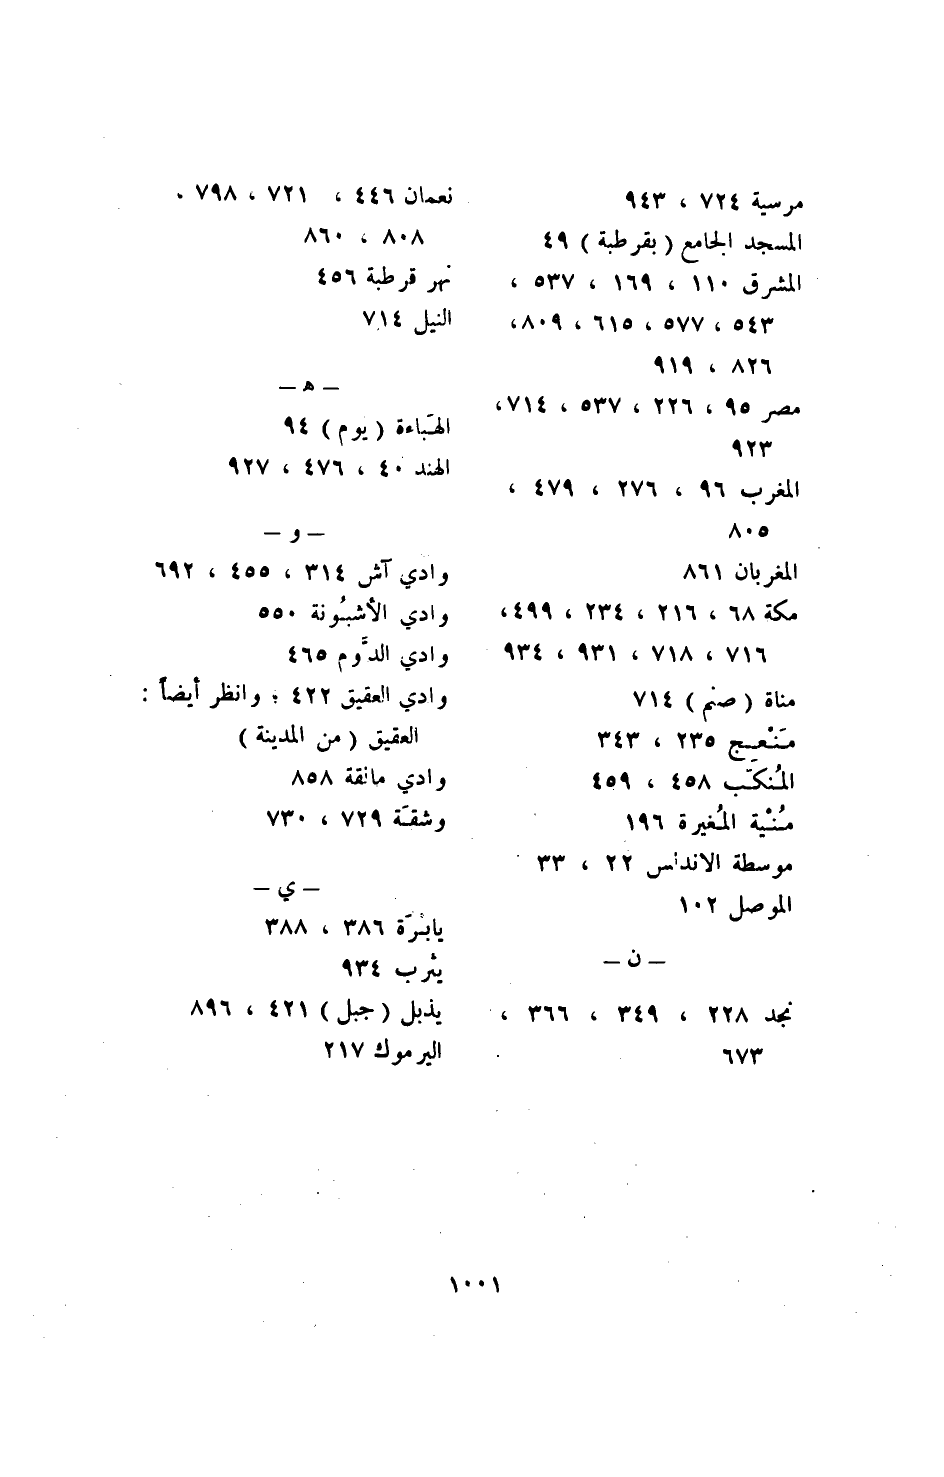 مرسية ٧٢٤ ، ٩٤٣
المسجد الجامع ( بقرطبة ) ٤٩
المشرق ١١٠ ، ١٦٩ ، ٥٣٧ ،
٥٤٣ ، ٥٧٧ ، ٦١٥ ، ٨٠٩،
٨٢٦ ، ٩١٩
مصر ٩٥ ، ٢٢٦ ، ٥٣٧ ، ٧١٤،
٩٢٣
المغرب ٩٦ ، ٢٧٦ ، ٤٧٩ ،
٨٠٥
المغربان ٨٦١
مكة ٦٨ ، ٢١٦ ، ٢٣٤ ، ٤٩٩،
٧١٦ ، ٧١٨ ، ٩٣١ ، ٩٣٤
مناة ( صنم ) ٧١٤
مَنْعِج ٢٣٥ ، ٣٤٣
المُنكَّب ٤٥٨ ، ٤٥٩
مُنْية المُغيرة ١٩٦
موسطة الاندلس ٢٢ ، ٣٣
الموصل ١٠٢
– ن –
نجد ٢٢٨ ، ٣٤٩ ، ٣٦٦ ،
٦٧٣
نعمان ٤٤٦ ، ٧٢١ ، ٧٩٨ .
٨٠٨ ، ٨٦٠
نهر قرطبة ٤٥٦
النيل ٧١٤
– ه –
الهَباءة ( يوم ) ٩٤
الهند ٤٠ ، ٤٧٦ ، ٩٢٧
– و –
وادي آش ٣١٤ ، ٤٥٥ ، ٦٩٢
وادي الأشبُونة ٥٥٠
وادي الدَّوم ٤٦٥
وادي العقيق ٤٢٢ ؛ وانظر أيضاً :
العقيق ( من المدينة )
وادي مانقة ٨٥٨
وشقَة ٧٢٩ ، ٧٣٠
– ي –
يابُرَة ٣٨٦ ، ٣٨٨
يثرب ٩٣٤
يذبل ( جبل ) ٤٢١ ، ٨٩٦
اليرموك ٢١٧
١٠٠١